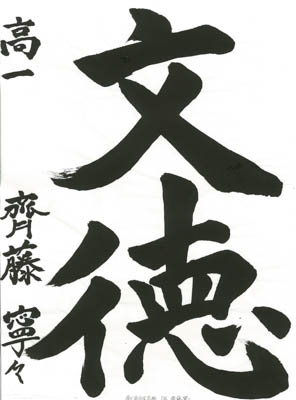 文徳
高一 齊藤寧々